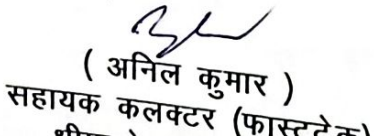 ( अनिल कुमार )
सहायक कलक्टर (फास्टट्रेक)